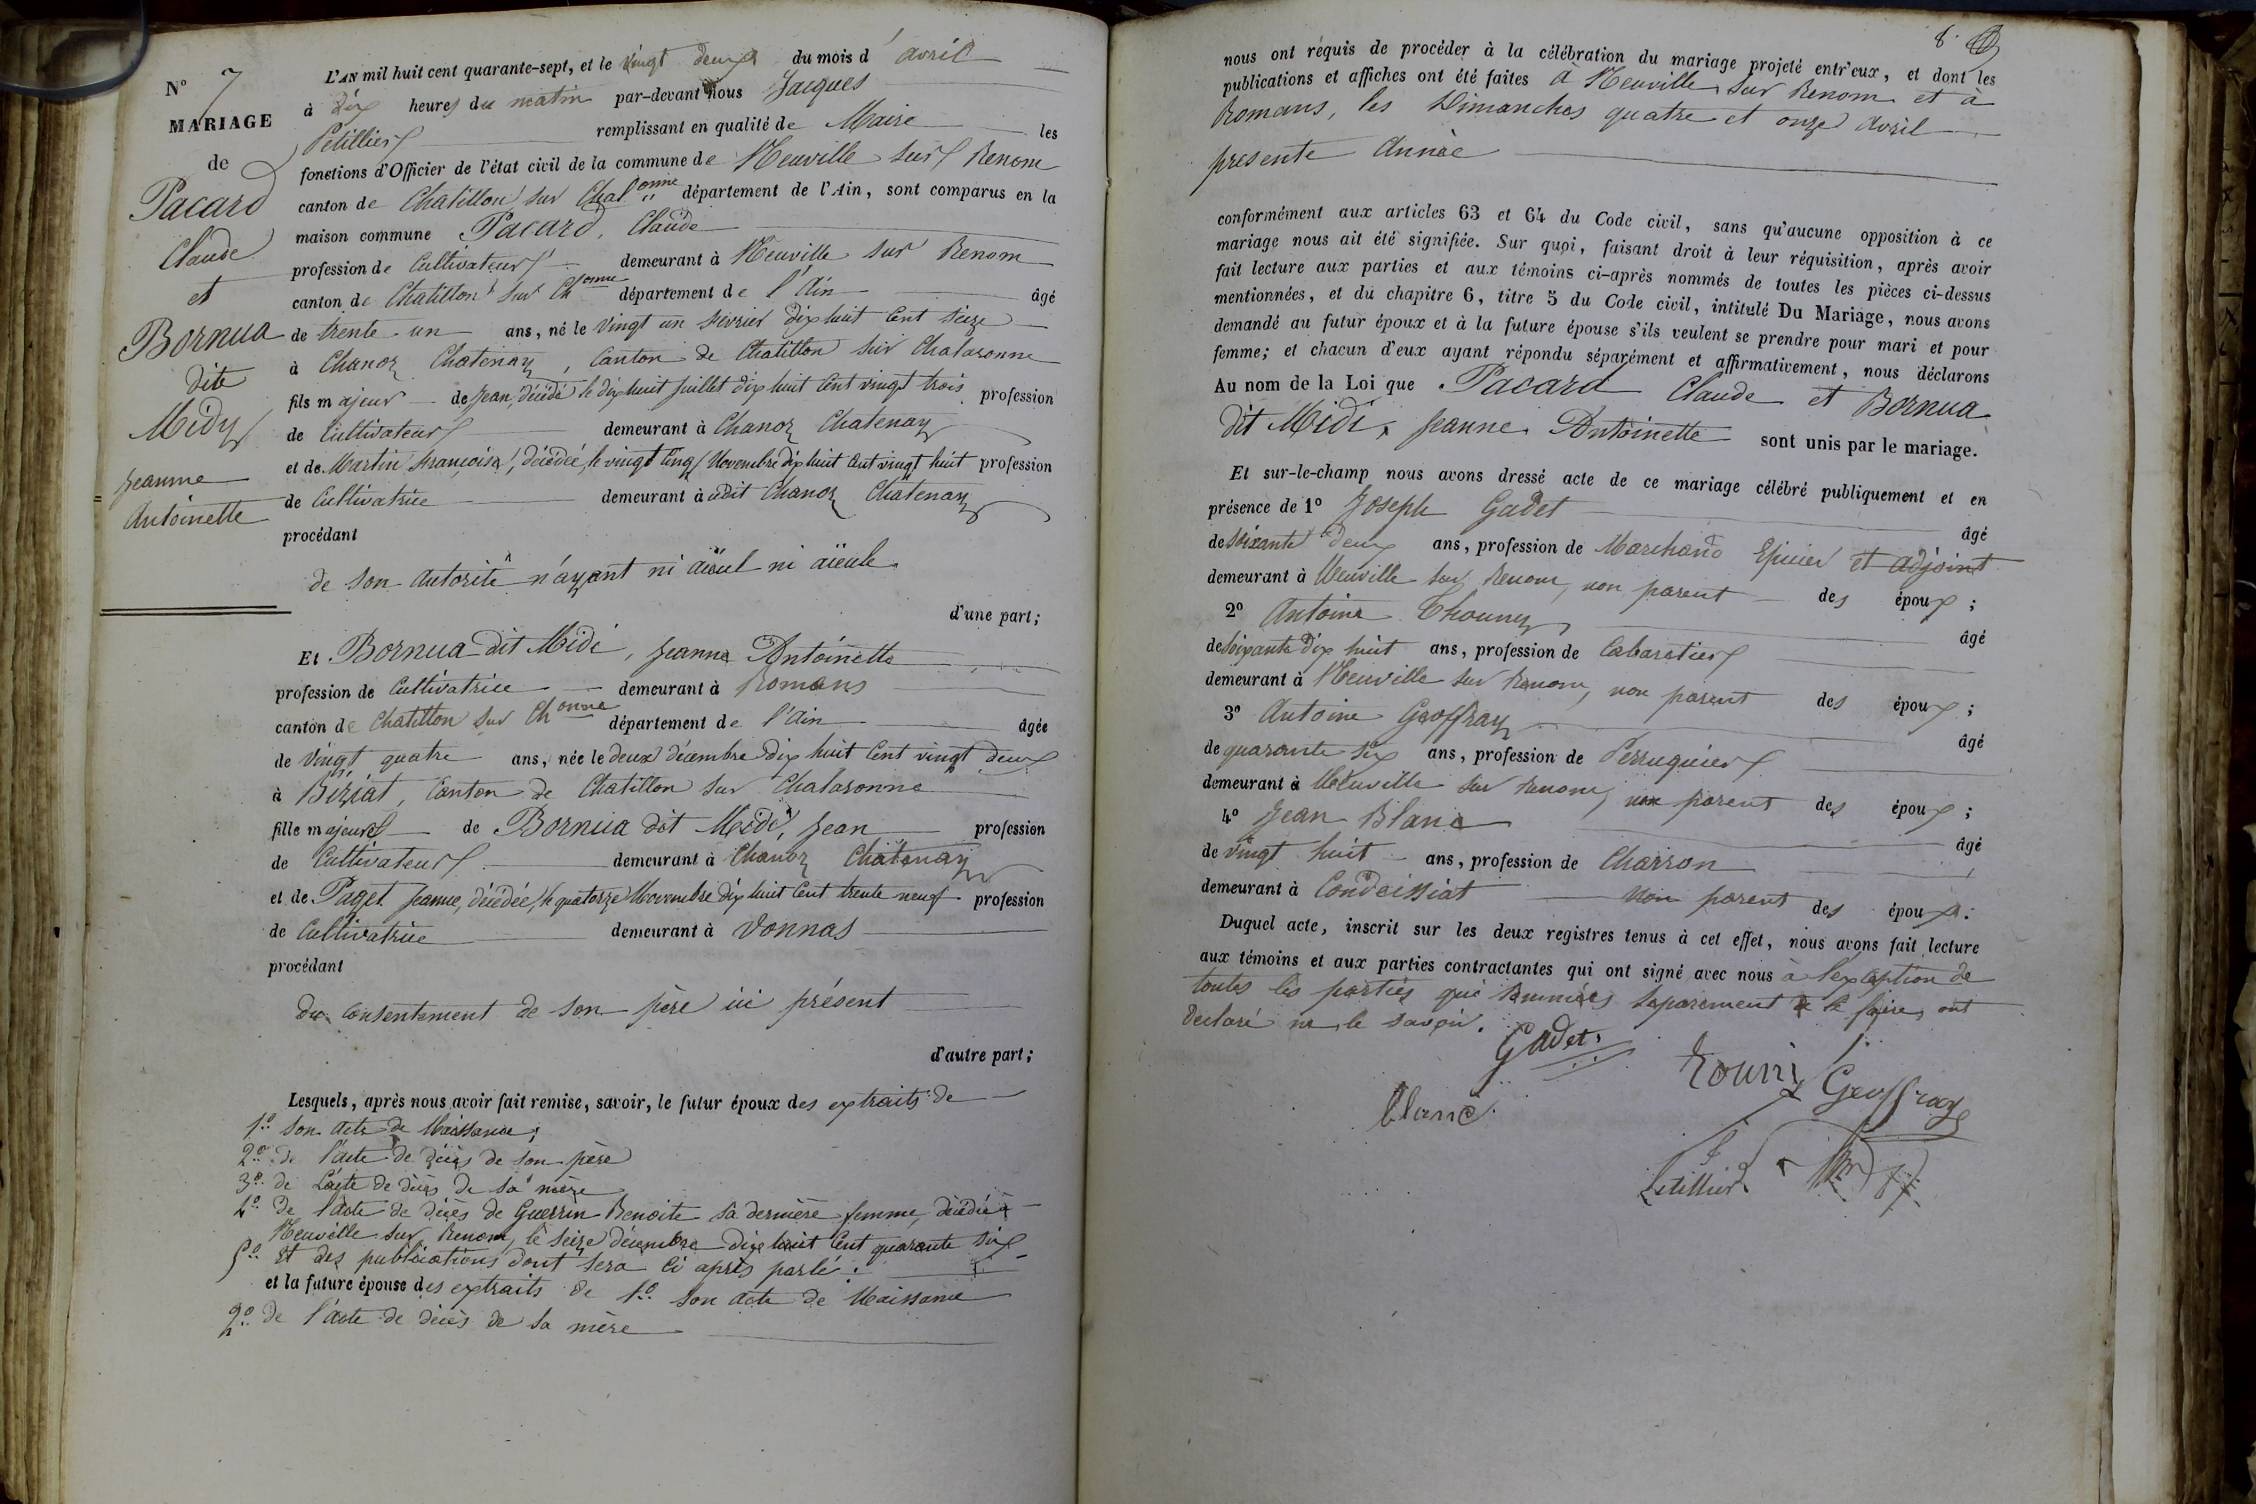 N° 7
MARIAGE
de
Pacard
Claude
et
Bornua
dite
Midy
Jeanne
Antoinette
L'AN mil huit cent quarante-sept, et le vingt deux du mois d'avril
à dix heures du matin par-devant nous Jacques
Petillier remplissant en qualité de Maire les
fonctions d'Officier de l'état civil de la commune de Neuville sur Renom
canton de Chatillon sur Chalonne département de l'Ain, sont comparus en la
maison commune Pacard, Claude
profession de Cultivateur demeurant à Neuville sur Renom
canton de Chatillon sur Chonne département de l'Ain âgé
de trente un ans, né le vingt un février dix huit cent seize
à Chanoz Chatenay, Canton de Chatillon sur Chalaronne
fils majeur de Jean, décédé le dix huit juillet dix huit cent vingt trois profession
de Cultivateur demeurant à Chanoz Chatenay
et de Martin Françoise, décédée, le vingt cinq Novembre dix huit cent vingt huit profession
de Cultivatrice demeurant à udit Chanoz Chatenay
procédant
de son autorité n'ayant ni aïeul ni aïeule
d'une part;
Et Bornua dit Midi, Jeanne Antoinette
profession de Cultivatrice demeurant à Romans
canton de Chatillon sur Chonne département de l'Ain âgée
de vingt quatre ans, née le deux décembre dix huit cent vingt deux
à Biziat, Canton de Chatillon sur Chalaronne
fille majeure de Bornua dit Midi, Jean profession
de Cultivateur demeurant à Chanoz Chatenay
et de Paget Jeanne, décédée, le quatorze Novembre dix huit cent trente neuf profession
de Cultivatrice demeurant à Vonnas
procédant
du consentement de son père ici présent
d'autre part;
Lesquels, après nous avoir fait remise, savoir, le futur époux des extraits de
1° son acte de Naissance;
2° de l'acte de décès de son père
3° de l'acte de décès de sa mère
4° de l'acte de décès de Guerrin Benoite sa dernière femme, décédée à
Neuville sur Renom, le seize décembre dix huit cent quarante six
5° Et des publications dont sera ci après parlé.
et la future épouse des extraits de 1° son acte de Naissance
2° de l'acte de décès de sa mère
8.
nous ont requis de procéder à la célébration du mariage projeté entr'eux, et dont les
publications et affiches ont été faites à Neuville sur Renom et à
Romans, les Dimanches quatre et onze avril
presente Année
conformément aux articles 63 et 64 du Code civil, sans qu'aucune opposition à ce
mariage nous ait été signifiée. Sur quoi, faisant droit à leur réquisition, après avoir
fait lecture aux parties et aux témoins ci-après nommés de toutes les pièces ci-dessus
mentionnées, et du chapitre 6, titre 5 du Code civil, intitulé Du Mariage, nous avons
demandé au futur époux et à la future épouse s'ils veulent se prendre pour mari et pour
femme; et chacun d'eux ayant répondu séparément et affirmativement, nous déclarons
Au nom de la Loi que Pacard Claude et Bornua
dit Midi, Jeanne Antoinette sont unis par le mariage.
Et sur-le-champ nous avons dressé acte de ce mariage célébré publiquement et en
présence de 1° Joseph Gadet âgé
de soixante deux ans, profession de Marchand Epicier et adjoint
demeurant à Neuville sur Renom, non parent des époux;
2° Antoine Thouny âgé
de soixante dix huit ans, profession de Cabaretier
demeurant à Neuville sur Renom, non parent des époux;
3° Antoine Geoffray âgé
de quarante six ans, profession de Perruquier
demeurant à Neuville sur Renom, non parent des époux;
4° Jean Blanc âgé
de vingt huit ans, profession de Charron
demeurant à Condeissiat non parent des époux.
Duquel acte, inscrit sur les deux registres tenus à cet effet, nous avons fait lecture
aux témoins et aux parties contractantes qui ont signé avec nous à l'exception de
toutes les parties qui sommées separement de le faire, ont
declaré ne le savoir.
Gadet.
Touni
Geoffray
blanc
Petillier